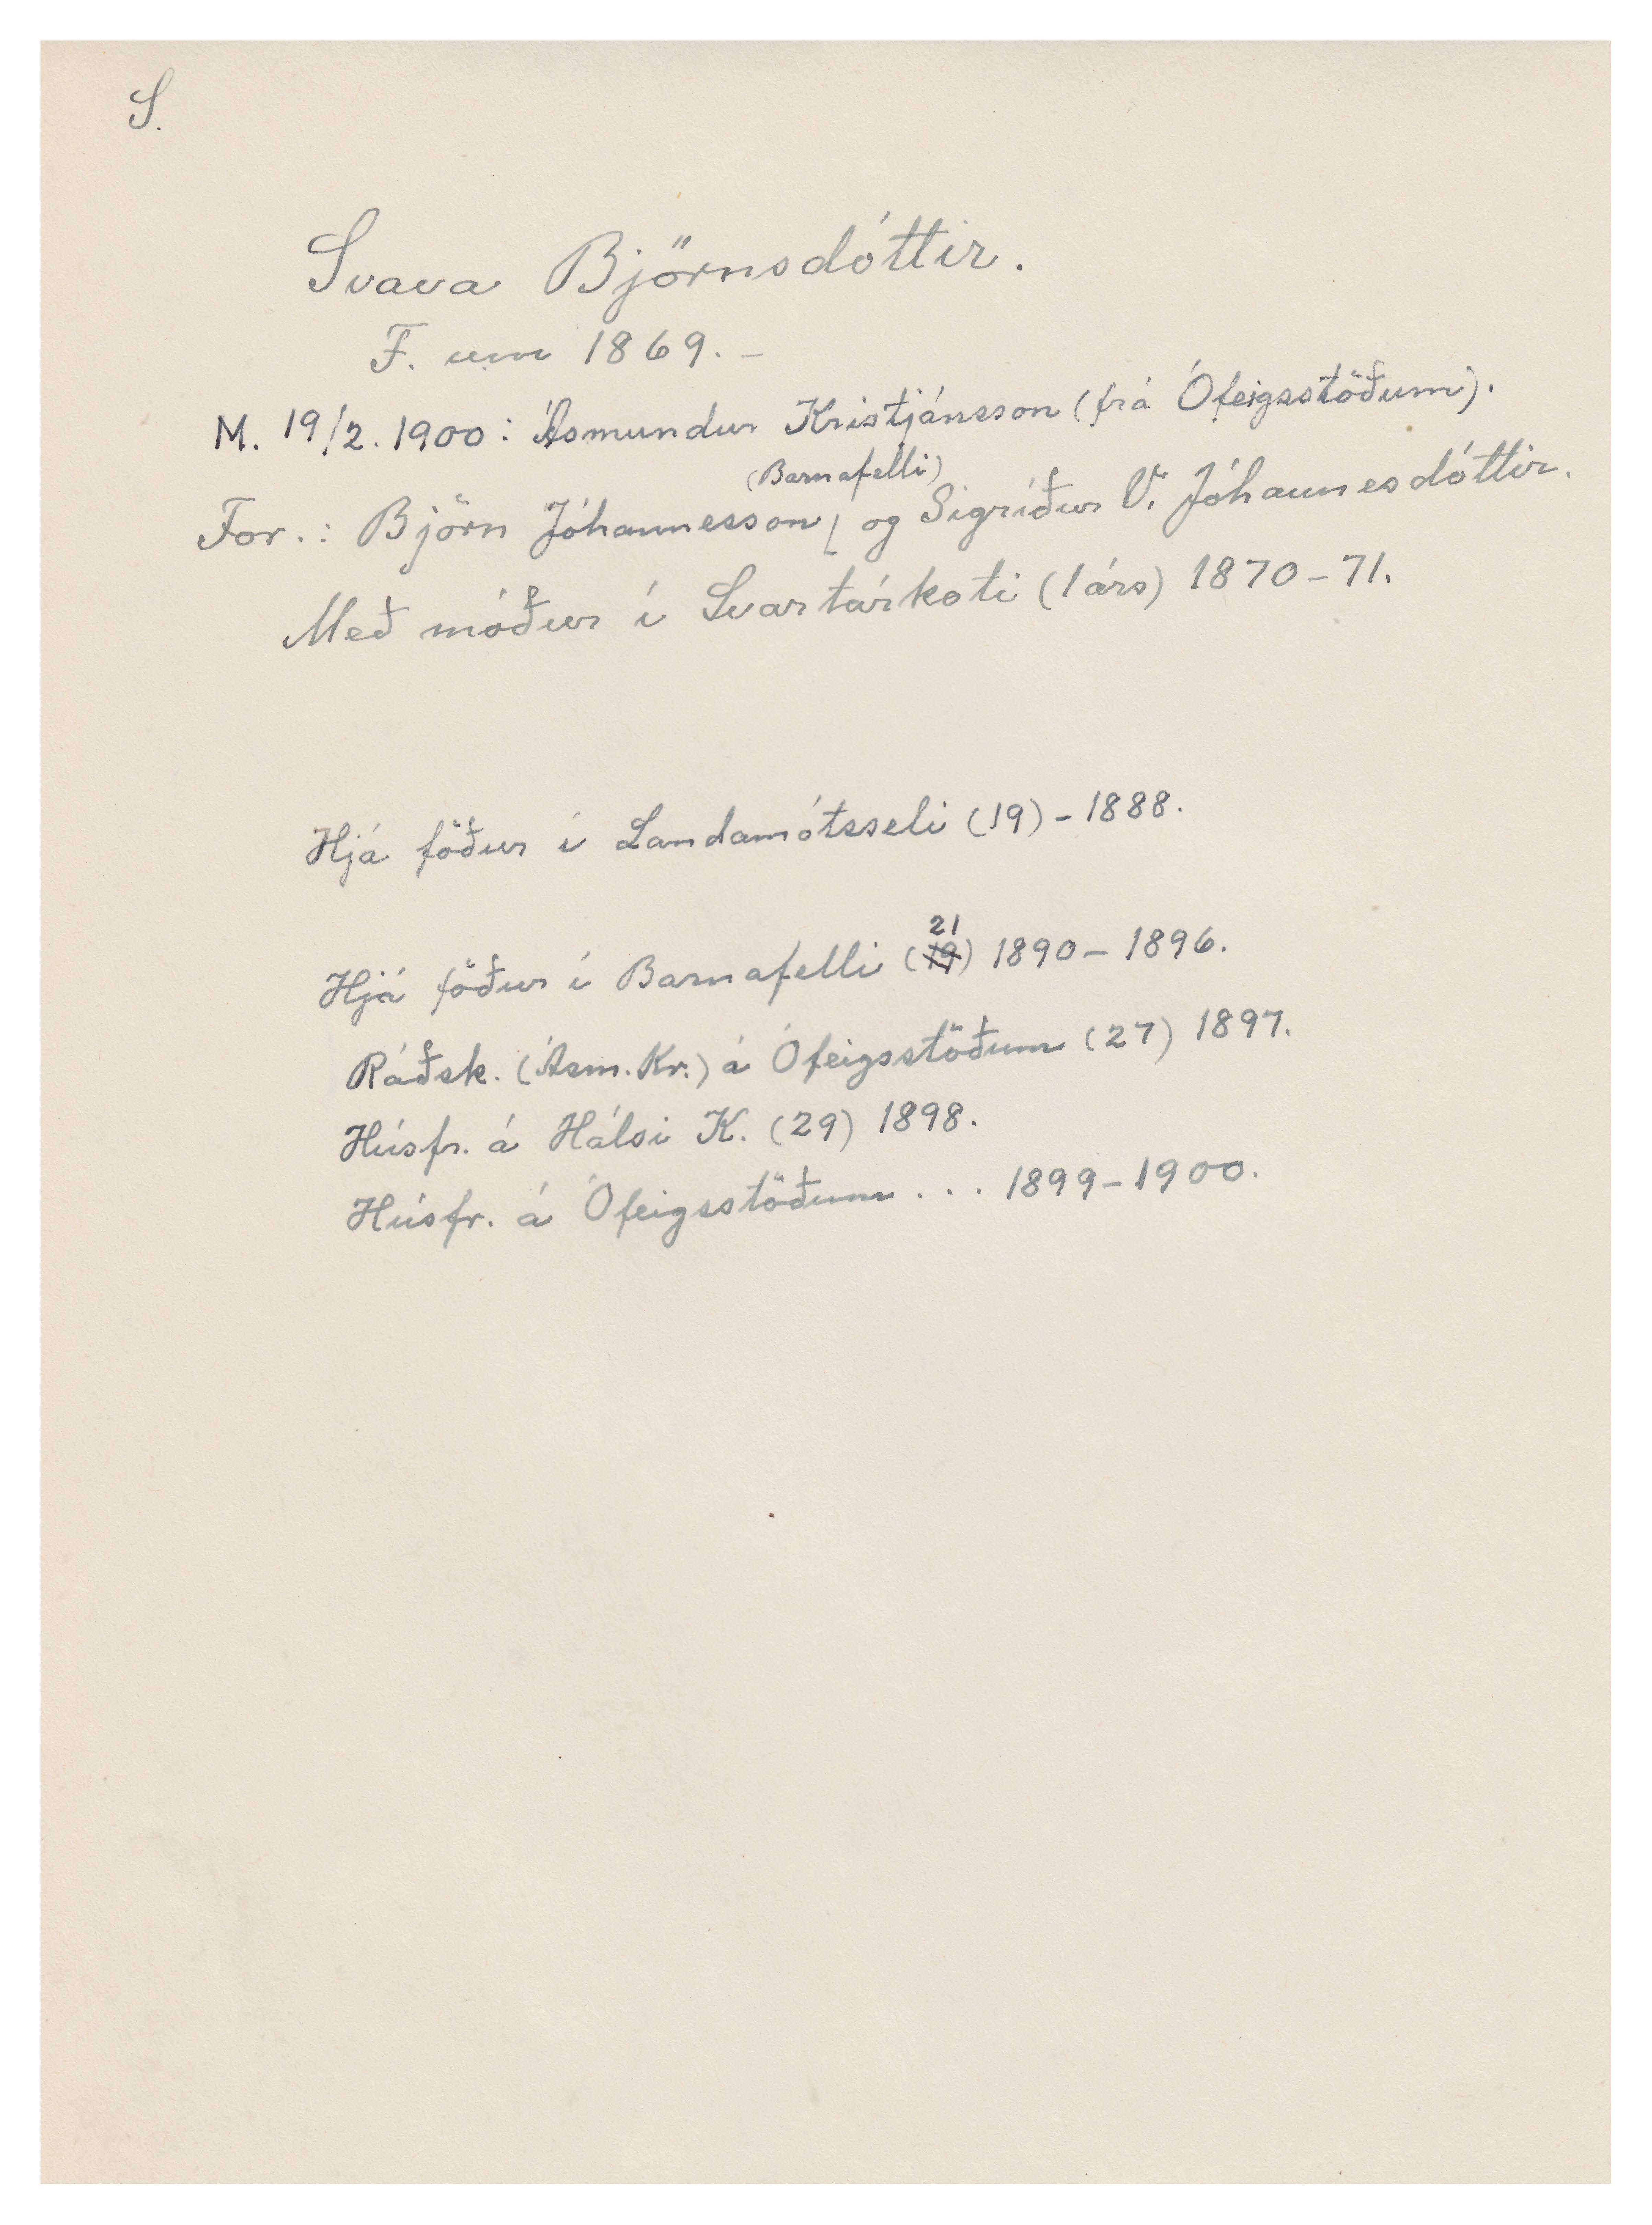 S.
Svava Björnsdóttir.
F. um 1869. –
M. 19/2. 1900: Ásmundur Kristjánsson (frá Ófeigsstöðum).
(Barnafelli)
For.: Björn Jóhannesson, og Sigríður V. Jóhannesdóttir.
Með móður í Svartárkoti (1 árs) 1870–71.
Hjá föður í Landamótsseli (19) – 1888.
21
Hjá föður í Barnafelli (19) 1890–1896.
Ráðsk. (Ásm. Kr.) á Ófeigsstöðum (27) 1897.
Húsfr. á Hálsi K. (29) 1898.
Húsfr. á Ófeigsstöðum . . . 1899–1900.